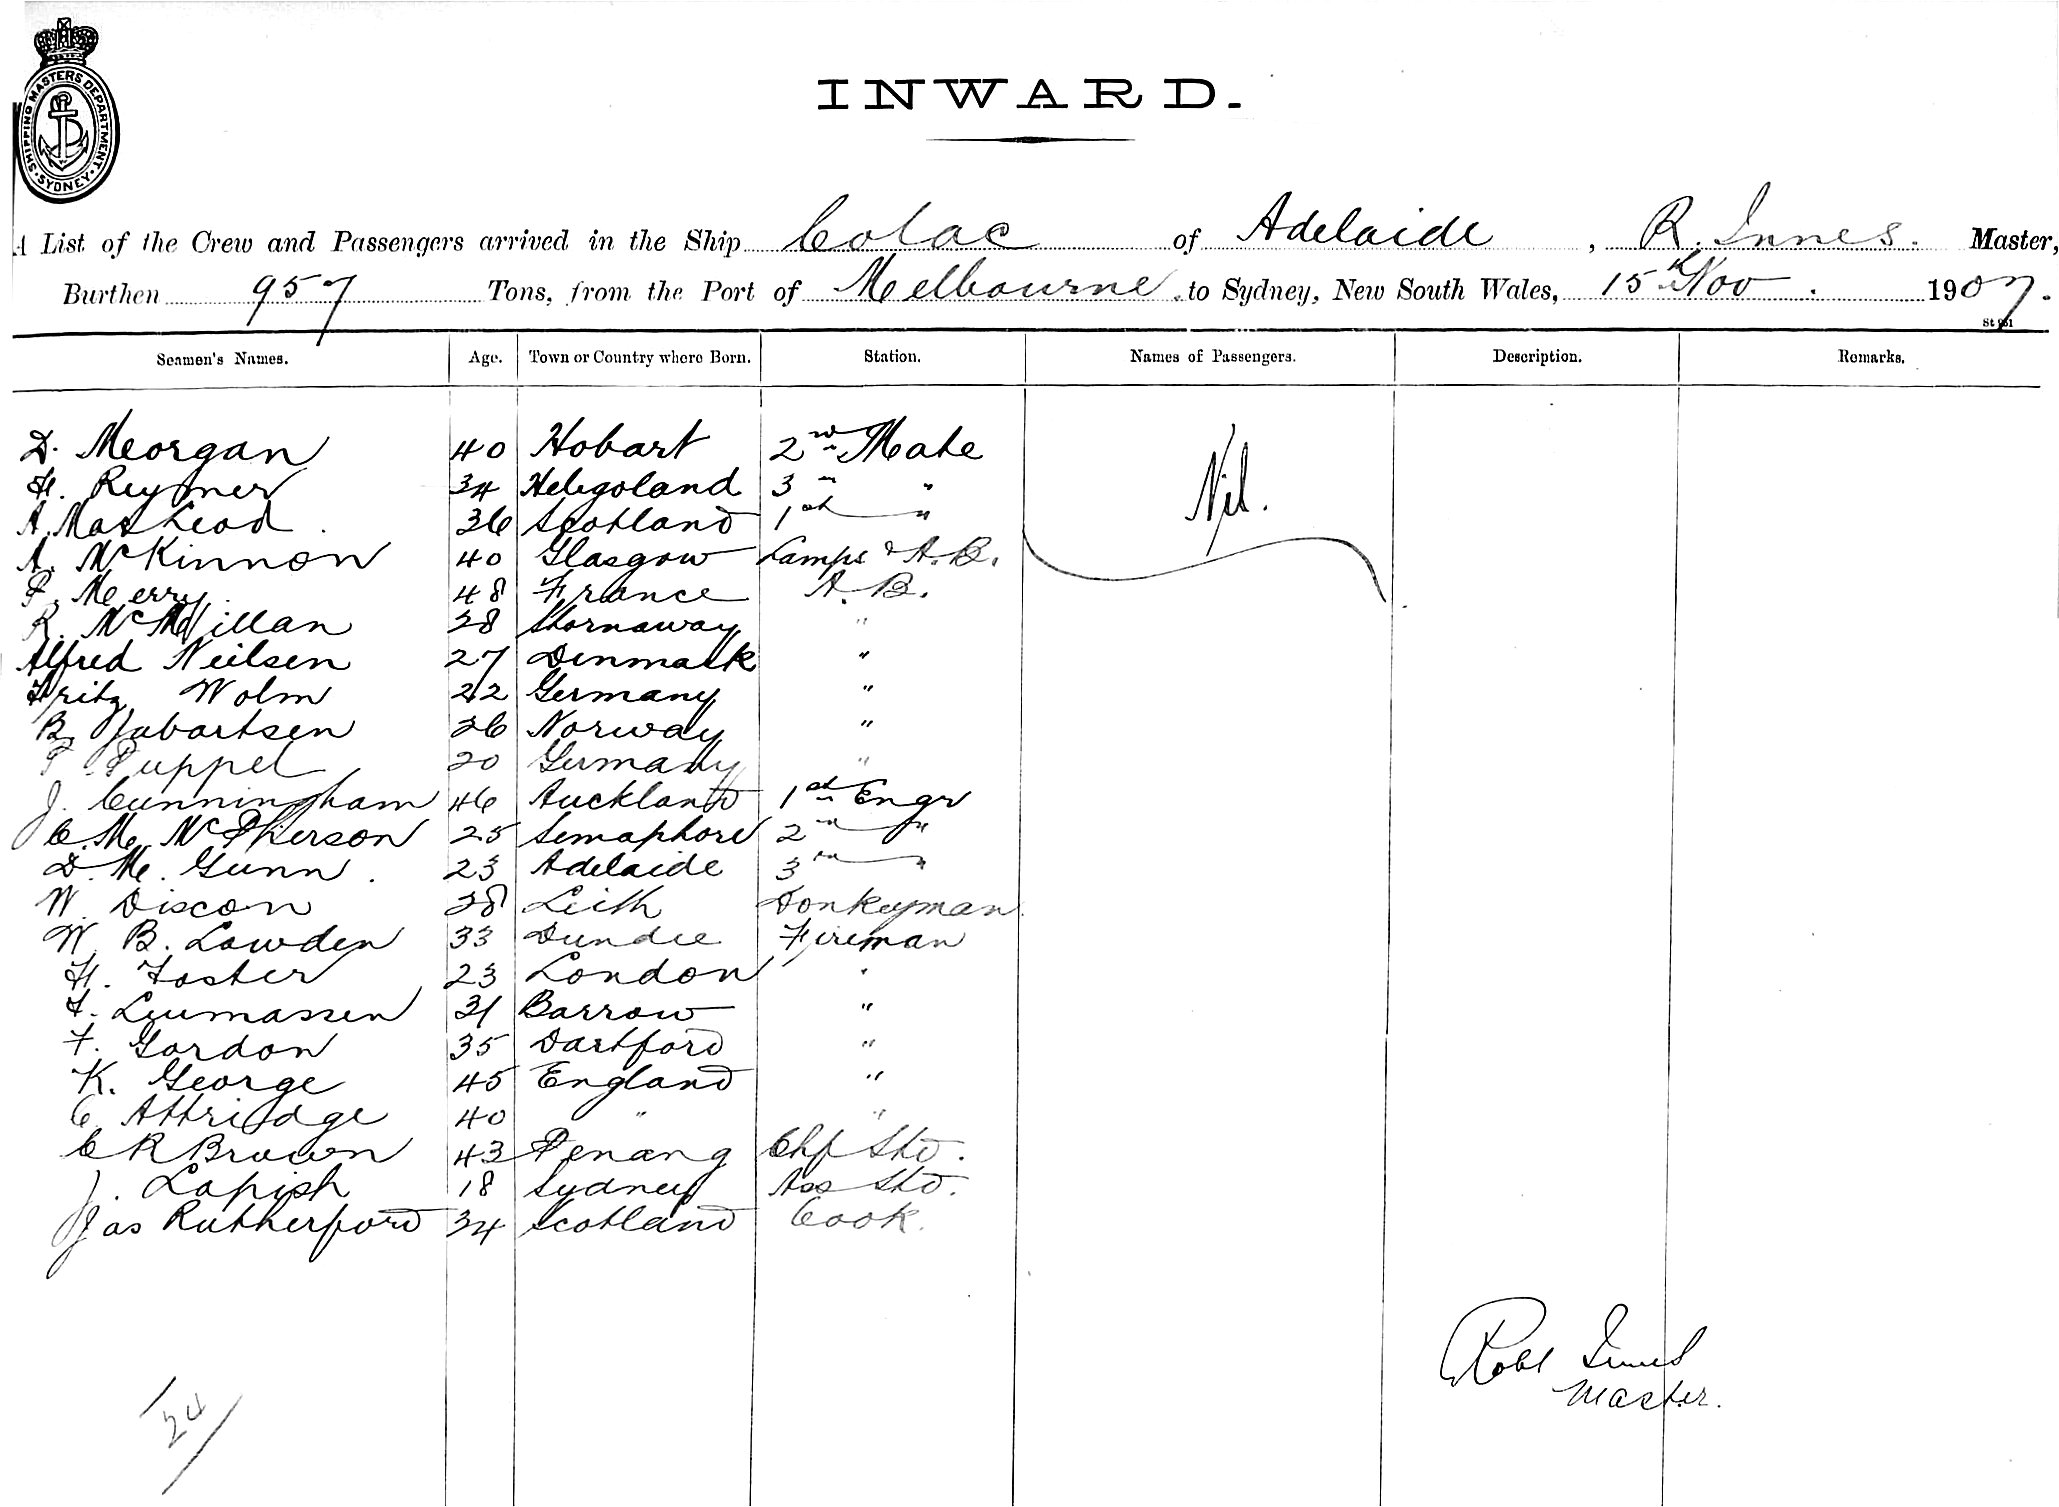 SHIPPING MASTERS DEPARTMENT · SYDNEY ·
INWARD.
A List of the Crew and Passengers arrived in the Ship Colac of Adelaide, R. Innes. Master,
Burthen 957 Tons, from the Port of Melbourne to Sydney, New South Wales, 15th Nov. 1907.
St 961
Seamen's Names. Age. Town or Country where Born. Station. Names of Passengers. Description. Remarks.
D. Morgan 40 Hobart 2nd Mate
H. Reymer 34 Heligoland 3 " "
Nil.
A. MacLeod 36 Scotland 1st "
A. McKinnon 40 Glasgow Lamps & A.B.
P. Merry 48 France A.B.
R. McMillan 28 Stornaway "
Alfred Neilsen 27 Denmark "
Fritz Wolm 22 Germany "
B. Jabartsen 26 Norway "
P Puppel 20 Germany "
J. Cunningham 46 Auckland 1st Engr
C. M. McPherson 25 Semaphore 2nd "
D. M. Gunn. 23 Adelaide 3rd "
W. Discon 28 Leith Donkeyman
W. B. Lowden 33 Dundee Fireman
H. Foster 23 London "
31 Barrow "
F. Gordon 35 Dartford "
K. George 45 England "
C Attridge 40 " "
C R Brown 43 Penang Chf Std.
J. Lapish 18 Sydney Ass Std.
Jas Rutherford 34 Scotland Cook.
Robt Innes
Master.
24